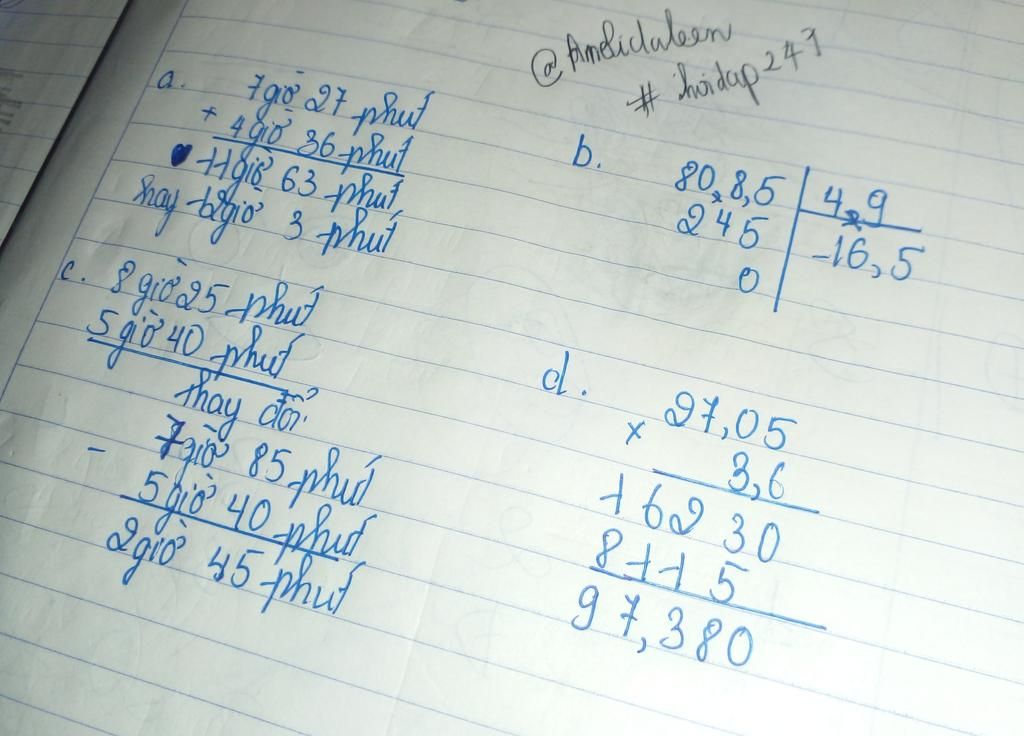 @Amelidaleen
# hoidap247
a. 7giờ 27 phút
+ 4giờ 36 phút
11giờ 63 phút
hay 12giờ 3 phút
b. 80,8,5 | 4,9
245 | 16,5
0
c. 8 giờ 25 phút
5 giờ 40 phút
thay đổi:
- 7giờ 85 phút
5 giờ 40 phút
2giờ 45 phút
d. 27,05
x 3,6
16230
8115
97,380